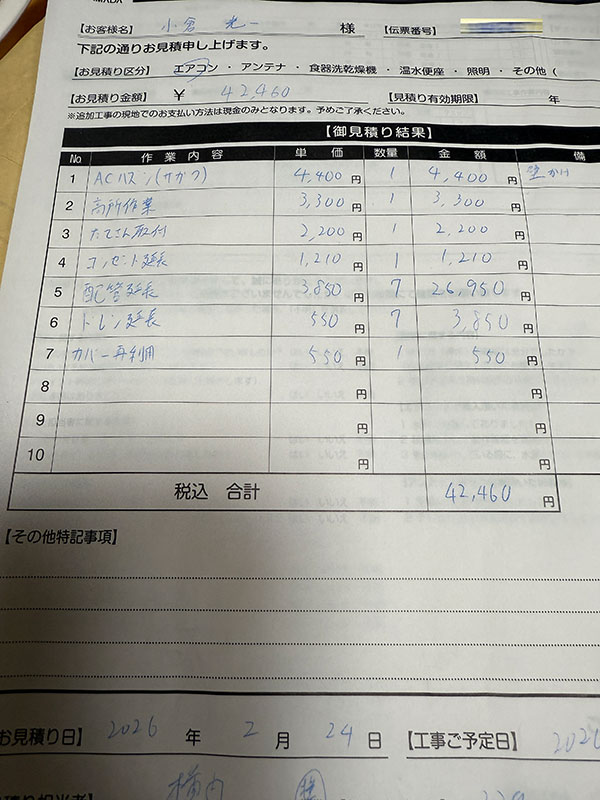 【お客様名】 小倉 光一 様 【伝票番号】
下記の通りお見積申し上げます。
【お見積り区分】 エアコン ・ アンテナ ・ 食器洗乾燥機 ・ 温水便座 ・ 照明 ・ その他 (
【お見積り金額】 ¥ 42,460 【見積り有効期限】 年
※追加工事の現地でのお支払い方法は現金のみとなります。予めご了承ください。
【御見積り結果】
No. 作業内容 単価 数量 金額 備
1 ACハズシ(サガク) 4,400円 1 4,400円 壁かけ
2 高所作業 3,300円 1 3,300円
3 たてさん取付 2,200円 1 2,200円
4 コンセント延長 1,210円 1 1,210円
5 配管延長 3,850円 7 26,950円
6 ドレン延長 550円 7 3,850円
7 カバー再利用 550円 1 550円
8 円 円
9 円 円
10 円 円
税込 合計 42,460円
【その他特記事項】
お見積り日】 2026 年 2 月 24 日 【工事ご予定日】 202